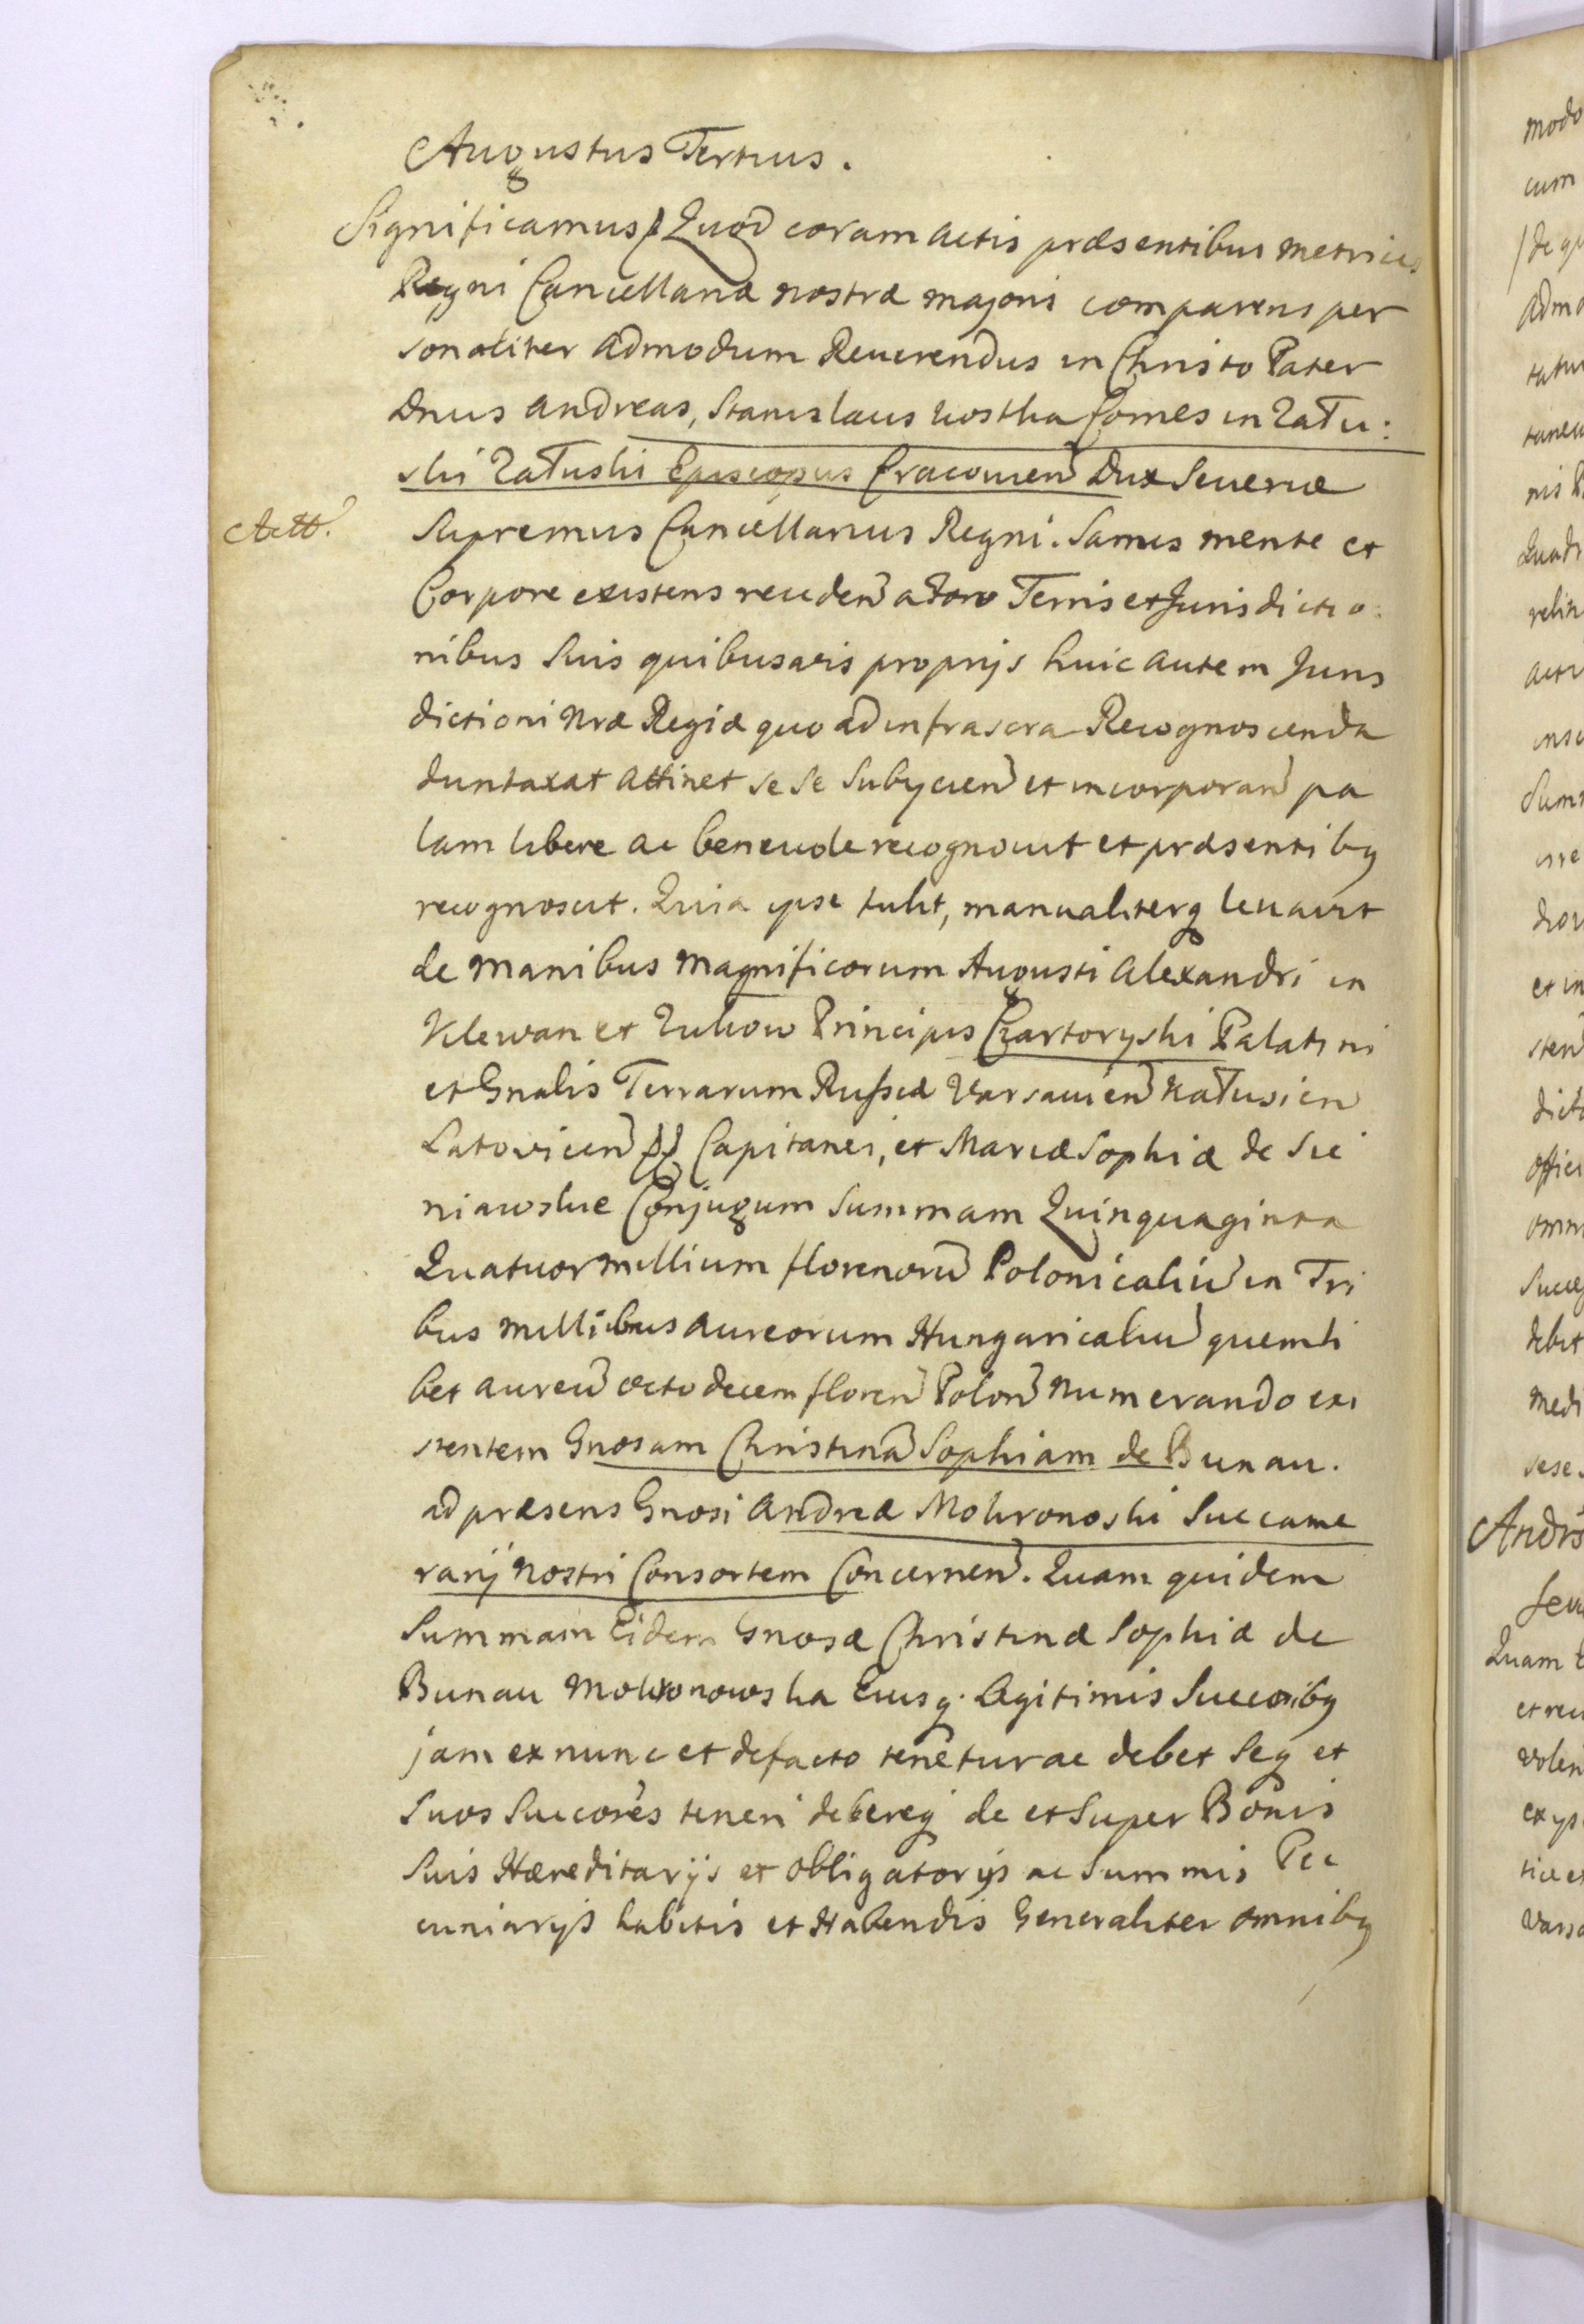 Augustus Tertius.
Significamus Quod coram actis præsentibus Metrices
Regni Cancellariæ nostræ majoris comparens per
sonaliter admodum Reuerendus in Christo Pater
Dnus Andreas, Stanislaus kostka Comes in Zału:
ski Załuski Episcopus Cracouien Dux Seueriæ
Actt.
Supremus Cancellarius Regni. Sanus mente et
Corpore existens receden a Foro Terris et Jurisdictio:
nibus Suis quibusuis proprijs huic autem Juris
dictioni Nræ Regiæ quo ad infrascra Recognoscenda
duntaxat attinet se se Subijcien et incorporan pa
lam libere ac beneuole recognouit et præsentibq
recognoscit. Quia ipse tulit, manualiterq leuauit
de Manibus Magnificorum Augusti Alexandri in
Klewan et Zukow Principis Czartoryski Palatini
et Gnalis Terrarum Russiæ Varsauien Kałusien
Latovicen Capitanei, et Mariæ Sophiæ de Sie
niawskie Conjugum Summam Quinquaginta
Quatuor millium florenoru Polonicaliu in Tri
bus millibus aureorum Hungaricaliu quemli
bet aureu octodecem floren Polon Numerando exi
stentem Gnosam Christina Sophiam de Bunau.
ad præsens Gnosi Andreæ Mokronoski Succame
rarij Nostri Consortem Concernen. Quam quidem
Summam Eidem Gnosæ Christinæ Sophiæ de
Bunau Mokronowska Eiusq. Legitimis Succoribq
jam ex nunc et de facto tenetur ac debet Seq et
Suos Succores teneri debereq de et Super Bonis
Suis Hæreditarijs et obligatorijs ac Summis Pec
cuniarijs habitis et Habendis Generaliter omnibq
modo
cum
Admo
relin
dicto
debet
Medi
sese
Andre
Quam